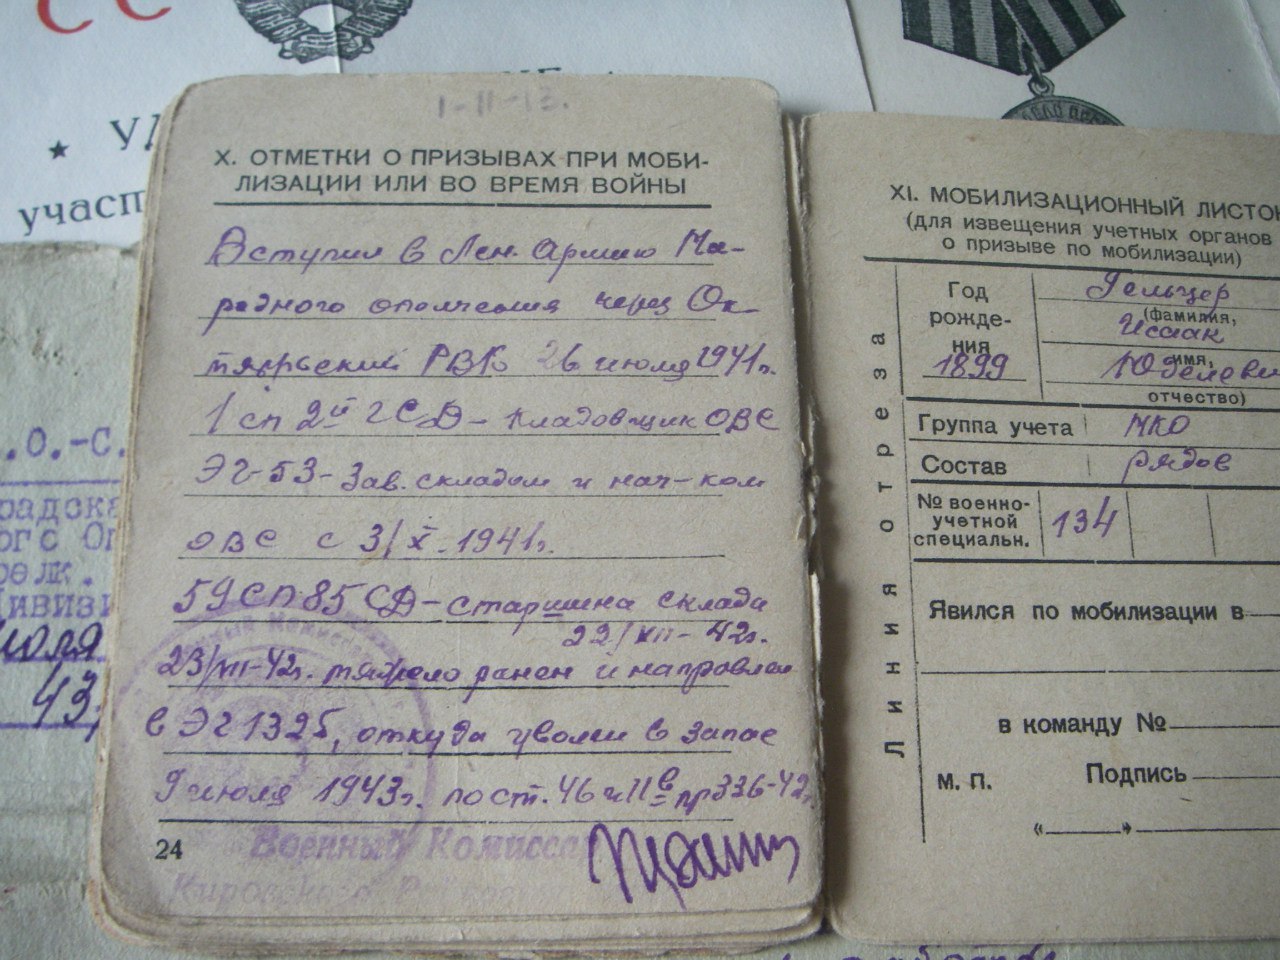 СС
УД
участ
1-II-43.
X. ОТМЕТКИ О ПРИЗЫВАХ ПРИ МОБИ-
ЛИЗАЦИИ ИЛИ ВО ВРЕМЯ ВОЙНЫ
Вступил в Лен. Армию На-
родного ополчения через Ок-
тябрьский РВК 26 июля 1941г.
1 сп 2й гСД - кладовщик ОВС
ЭГ-53- Зав. складом и нач-ком
ОВС с 3/X-1941г.
59 СП 85 СД - старшина склада
22/XII-42г.
23/XII-42г. тяжело ранен и направлен
в ЭГ 1325, откуда уволен в запас
9 июля 1943г. по ст. 46 г. II в пр 336-42г.
24
Военный Комисса
Кировского
XI. МОБИЛИЗАЦИОННЫЙ ЛИСТОК
(для извещения учетных органов
о призыве по мобилизации)
Линия отреза
Год рожде-
ния
1899
Гельцер
(фамилия,
Исаак
имя,
Юделеви
отчество)
Группа учета МКО
Состав рядов
№ военно-
учетной
специальн.
134
Явился по мобилизации в
в команду №
М. П. Подпись
« »
.О.-С.
радска
ого Оп
релк.
Дивизи
июля
43